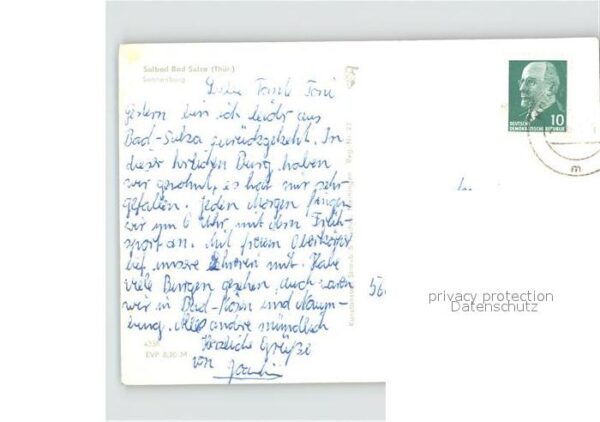 Solbad Bad Sulza (Thür.)
Sonnenburg
Liebe Tante Toni
gestern bin ich leider aus
Bad-Sulza zurückgekehrt. In
dieser Burg haben
wir gewohnt, es hat mir sehr
gefallen. Jeden Morgen fingen
wir um 6 Uhr mit dem Früh-
sport an. Mit freiem Oberkörper
lief unsere Lehrerin mit. Habe
viele Burgen gesehen, auch waren
wir in Bad-Kösen und Naum-
burg. Alles andere mündlich
Herzliche Grüße
von Joachim
4238
EVP 0,20 M
DEUTSCHE
DEMOKRATISCHE REPUBLIK
10
m
56
privacy protection
Datenschutz